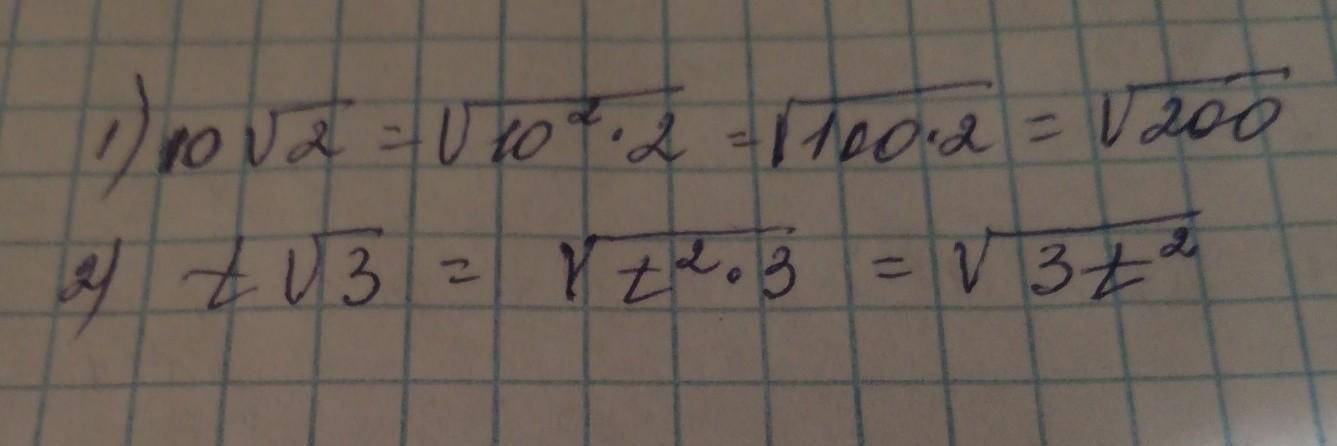 1) 10√2 = √10²·2 = √100·2 = √200
2) t√3 = √t²·3 = √3t²